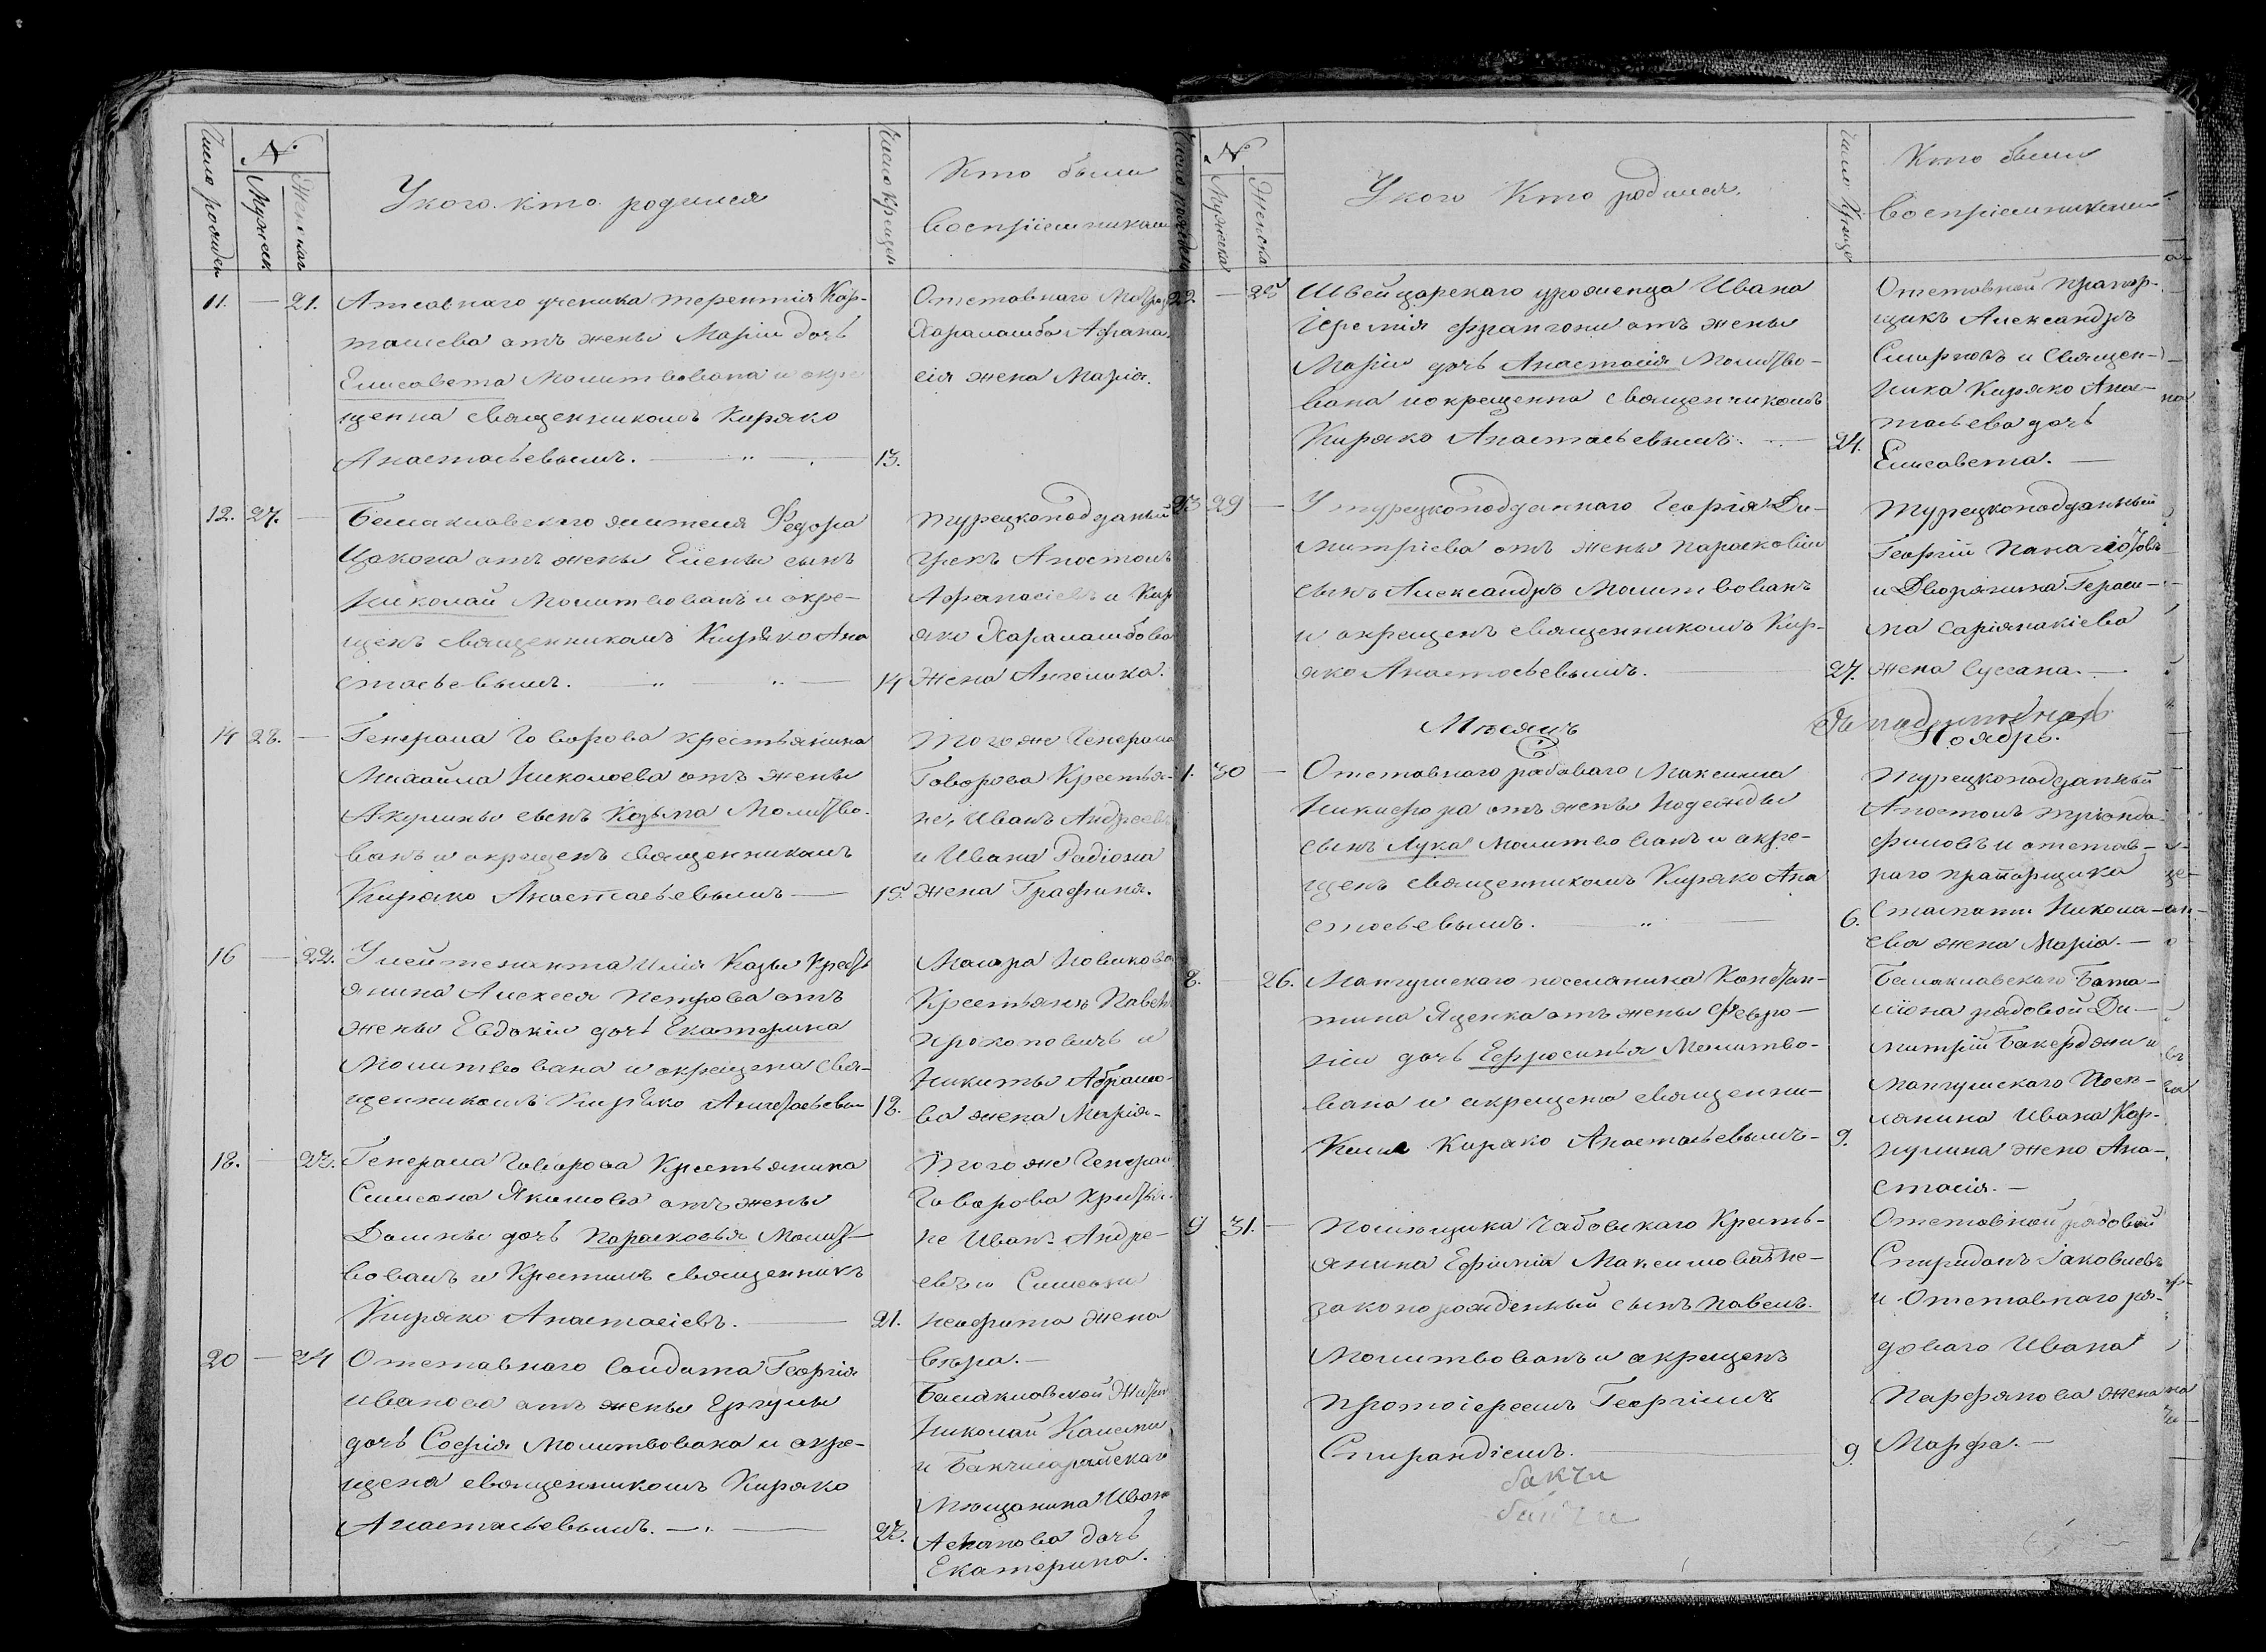 Число рожден
№
Мужеск
Женскаг
У кого кто родился
Число крещен
Кто были
воспріемникам
11. — 21. Отставнаго ученика терентія Кор-
ташева отъ жены Маріи дочь
Елисавета Молитвована и окре
щенна священникомъ Киряко
Анастасьевымъ. 13.
Отставнаго
Харалашба Афана
сія жена Марія.
12. 27. — Балаклавскаго жителя Федора
Цакона отъ жены Елены сынъ
Николай Молитвованъ и окре-
щенъ священникомъ Киряко Ана
стасьевымъ. 14
турецкоподданый
грекъ Апостолъ
Афанасіевъ и Кир
яко Харалашбова
жена Ангелика.
14 28. — Генерала Говорова крестьянина
Михайла Николаева отъ жены
Акулины сынъ Козьма Молитво-
ванъ и окрещенъ священникомъ
Киряко Анастасьевымъ — 15.
Того же Генерала
Говорова Крестья-
не, Иванъ Андреевъ
и Ивана Радіона
жена Графина.
16 — 22. У лейтенанта Илія Казы Крест
янина Алексея Петрова отъ
жены Евдокіи дочь Екатерина
Молитвована и окрещена свя-
щенникомъ Киряко Анастасьевым 18.
Маіора Новикова
Крестьянъ Павелъ
Прокоповичъ и
Никиты Абрамо-
ва жена Марія-
18. — 23. Генерала Говорова Крестьянина
Симеона Якимова отъ жены
Домны дочь Парасковья Молит-
вовалъ и Крестилъ священникъ
Киряко Анастасіевъ. 21.
Того же Генерал
Говорова Крестья-
не Иванъ Андре-
евъ и Симеона
Неофита жена
Вѣра. —
20 — 24 Отставнаго Солдата Георгія
Иванова отъ жены Ергулы
дочь Софія Молитвована и окре-
щена священникомъ Киряко
Анастасьевымъ. 22.
Балаклавской Жител
Николай
и Бакчисарайскаго
Мѣщанина Иван
дочь
Екатерина.
Число рожден
№
Мужеска
Женска
У кого Кто родился.
Число Креще
Кто были
Воспріемниками
22. — 25 Швейцарскаго уроженца Ивана
Іеремія Франгони отъ жены
Маріи дочь Анастасія Молитво-
вана и окрещенна священникомъ
Киряко Анастасьевымъ. 24.
Отставной Прапор-
щикъ Александръ
Смирновъ и Священ-
ника Киряко Анас-
тасьева дочь
Елисавета. —
23 29 — У турецкоподданнаго Георгія Ди-
митріева отъ жены парасковіи
сынъ Александръ Молитвованъ
и окрещенъ священникомъ Кир-
яко Анастасьевымъ. 27.
Турецкоподданный
Георгій Панагіотовъ
и Дворянина Гераси-
ма Саріянакіева
жена Сусана. —
Мѣсяцъ
Ноябрь.
1. 30 — Отставнаго рядоваго Максима
Никифора отъ жены Надежды
сынъ Лука Молитвованъ и окре-
щенъ священникомъ Киряко Ана
стасьевымъ. 6.
Турецкоподданный
Апостолъ тріанда-
филовъ и отстав-
наго прапорщика
Стаматы Никола-
ева жена Марія. —
8. 26. Мангушскаго поселянина Констан-
тина Яценка отъ жены Февро-
ніи дочь Ефросинья Молитво-
вана и окрещена священни-
комъ Киряко Анастасьевымъ- 9.
Балаклавскаго Бата-
ліона рядовой Ди-
митрій Бакерджи и
Мангушскаго Посе-
лянина Ивана Кар-
пулина жена Ана-
стасія. —
9 31. — Помѣщика Чабовскаго Кресть-
янина Ефимія Максимова не-
законорожденный сынъ Павелъ.
Молитвованъ и окрещенъ
Протоіереемъ Георгіемъ
Спирандіемъ. 9.
Отставной рядовой
Спиридонъ Іаковлевъ
и Отставнаго ря-
доваго Ивана
Парфянова жена
Марфа. —
бакчи